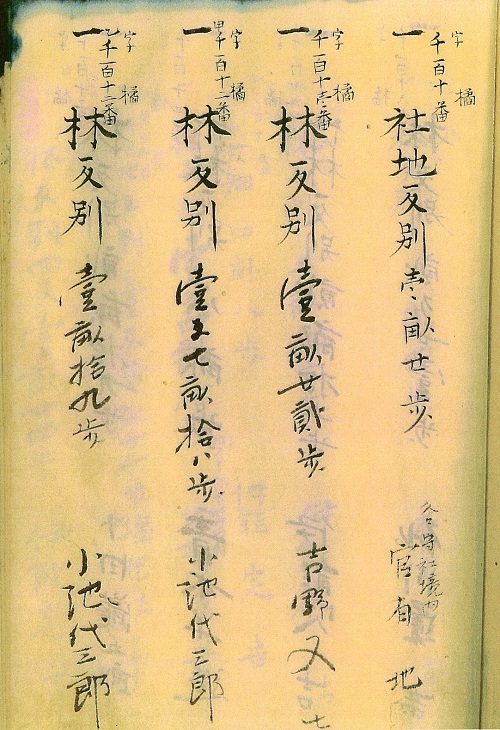 字 橘
千百十番
一 社地反別 壱畝廿歩
社境内
官有地
字 橘
千百十壱番
一 林反別 壹畝廿貳歩
吉野又七
字 橘
甲千百十二番
一 林反別 壹反七畝拾八歩
小池代三郎
字 橘
乙千百十二番
一 林反別 壹畝拾九歩
小池代三郎